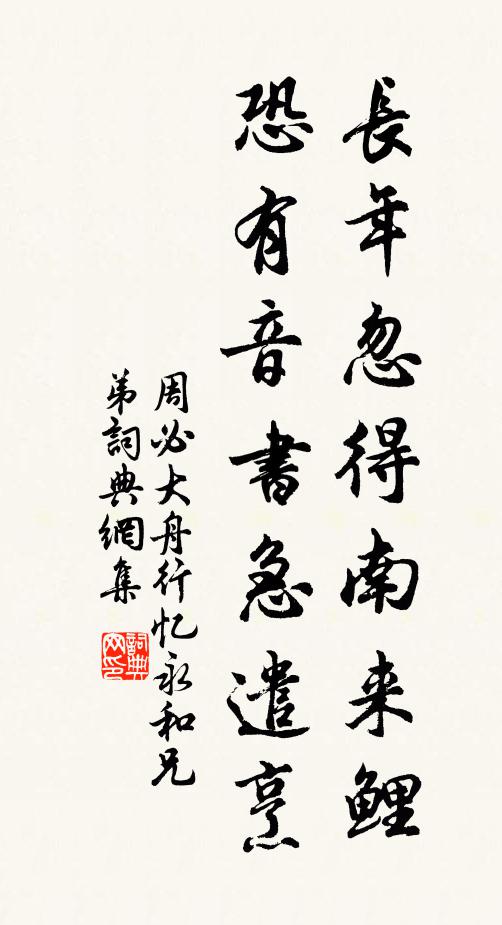 長年忽得南来鲤
恐有音書急遣烹
周必大舟行忆永和兄
弟詞典網集
詞典网印